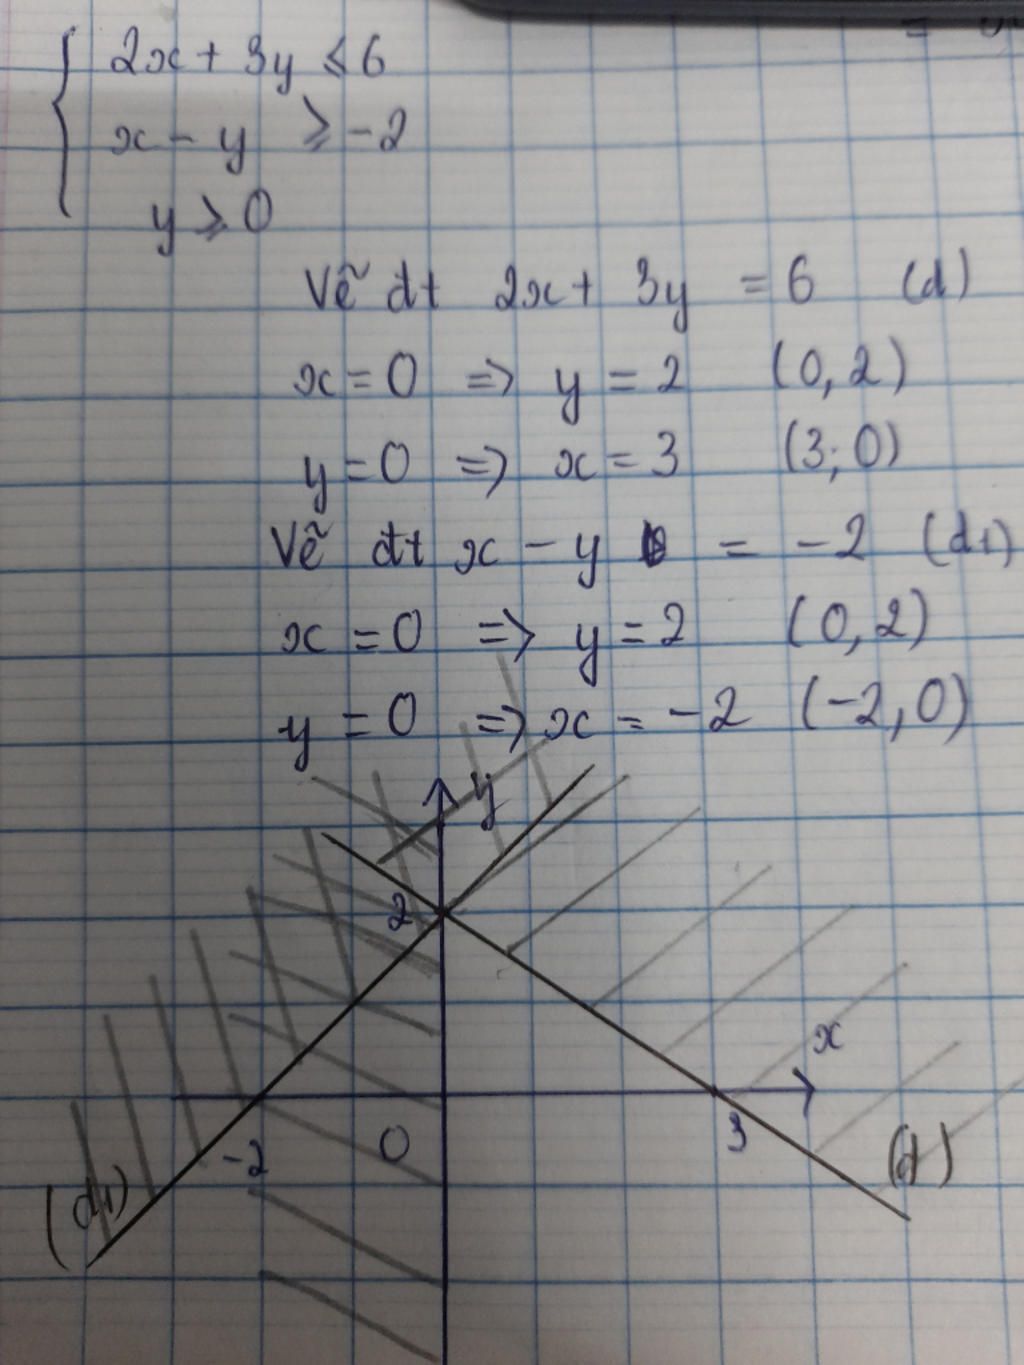 2x + 3y ≤ 6
x - y ≥ -2
y ≥ 0
Vẽ đt 2x + 3y = 6 (d)
x = 0 => y = 2 (0, 2)
y = 0 => x = 3 (3; 0)
Vẽ đt x - y = -2 (d1)
x = 0 => y = 2 (0, 2)
y = 0 => x = -2 (-2, 0)
y
2
x
-2 0 3
(d1) (d)